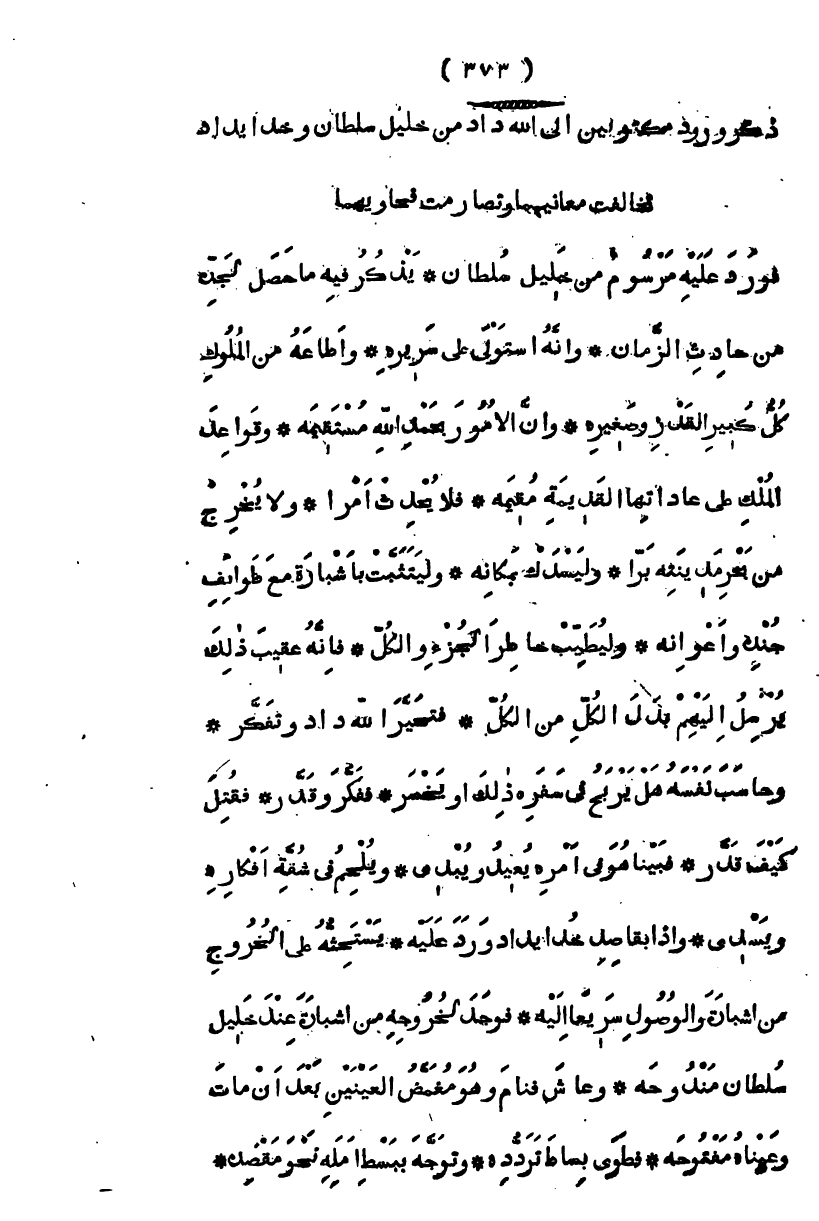 ( ٣٧٣ )
ذكر ورود مكتوبين الى الله داد من خليل سلطان وخدايداد
تخالفت معانيهما وتصارمت فحاويهما
فورد عَلَيْهِ مَرْسُومٌ من خَلِيل سُلطان * يَذْكُرُ فيهِ ما حَصَلَ لجَدِّه
من حادِثِ الزَّمان * وانَّهُ استَوْلَى على سَرِيرِهِ * واَطاعَهُ من المُلُوكِ
كُلُّ كَبِيرِ القَدْرِ وصَغِيرِه * وانَّ الاُمُورَ بِحَمْدِ اللّهِ مُسْتَقِيمَه * وقَواعِدَ
المُلْكِ على عاداتِها القَدِيمَةِ مُقِيمَه * فلا يُحْدِثْ اَمْرا * ولا يُخْرِجْ
من بَحْرِ مَدِينَتِه بَرّا * وليَسْدَكْ بِمَكانِه * وليَتَثَبَّتْ باَشْبارَة مَعَ طَوائِفِ
جُنْدِه واَعْوانِه * وليُطَيِّبْ خاطِرَ الجُزْءِ والكُلّ * فانَّهُ عَقِيبَ ذٰلِكَ
يُرْسِلُ اِلَيْهِمْ بَدَلَ الكُلِّ من الكُلّ * فتَحَيَّرَ اللّه داد وتَفَكَّر *
وحاسَبَ نَفْسَهُ هَلْ يَرْبَحُ فى سَفَرِه ذٰلِكَ او يَخْسَر * ففَكَّرَ وقَدَّر * فقُتِلَ
كَيْفَ قَدَّر * فبَيْنا هُوَ فى اَمْرِه يُعِيدُ ويُبْدِى * ويُلْحِمُ فى شُقَّةِ اَفْكارِه
ويَسْدِى * واذا بقاصِدِ خُدايداد وَرَدَ عَلَيْه * يَسْتَحِثُّهُ على الخُرُوجِ
من اشبارَة والوُصُولِ سَرِيعًا اِلَيْه * فوَجَدَ لخُرُوجِه من اشبارَة عِنْدَ خَلِيل
سُلطان مَنْدُوحَه * وعاشَ فنامَ وهُوَ مُغَمَّضُ العَيْنَيْنِ بَعْدَ اَنْ ماتَ
وعَيْناهُ مَفْتُوحَه * فطَوَى بِساطَ تَرَدُّدِه * وتَوَجَّهَ ببَسْطِ اَمَلِهِ نَحْوَ مَقْصِدِه *